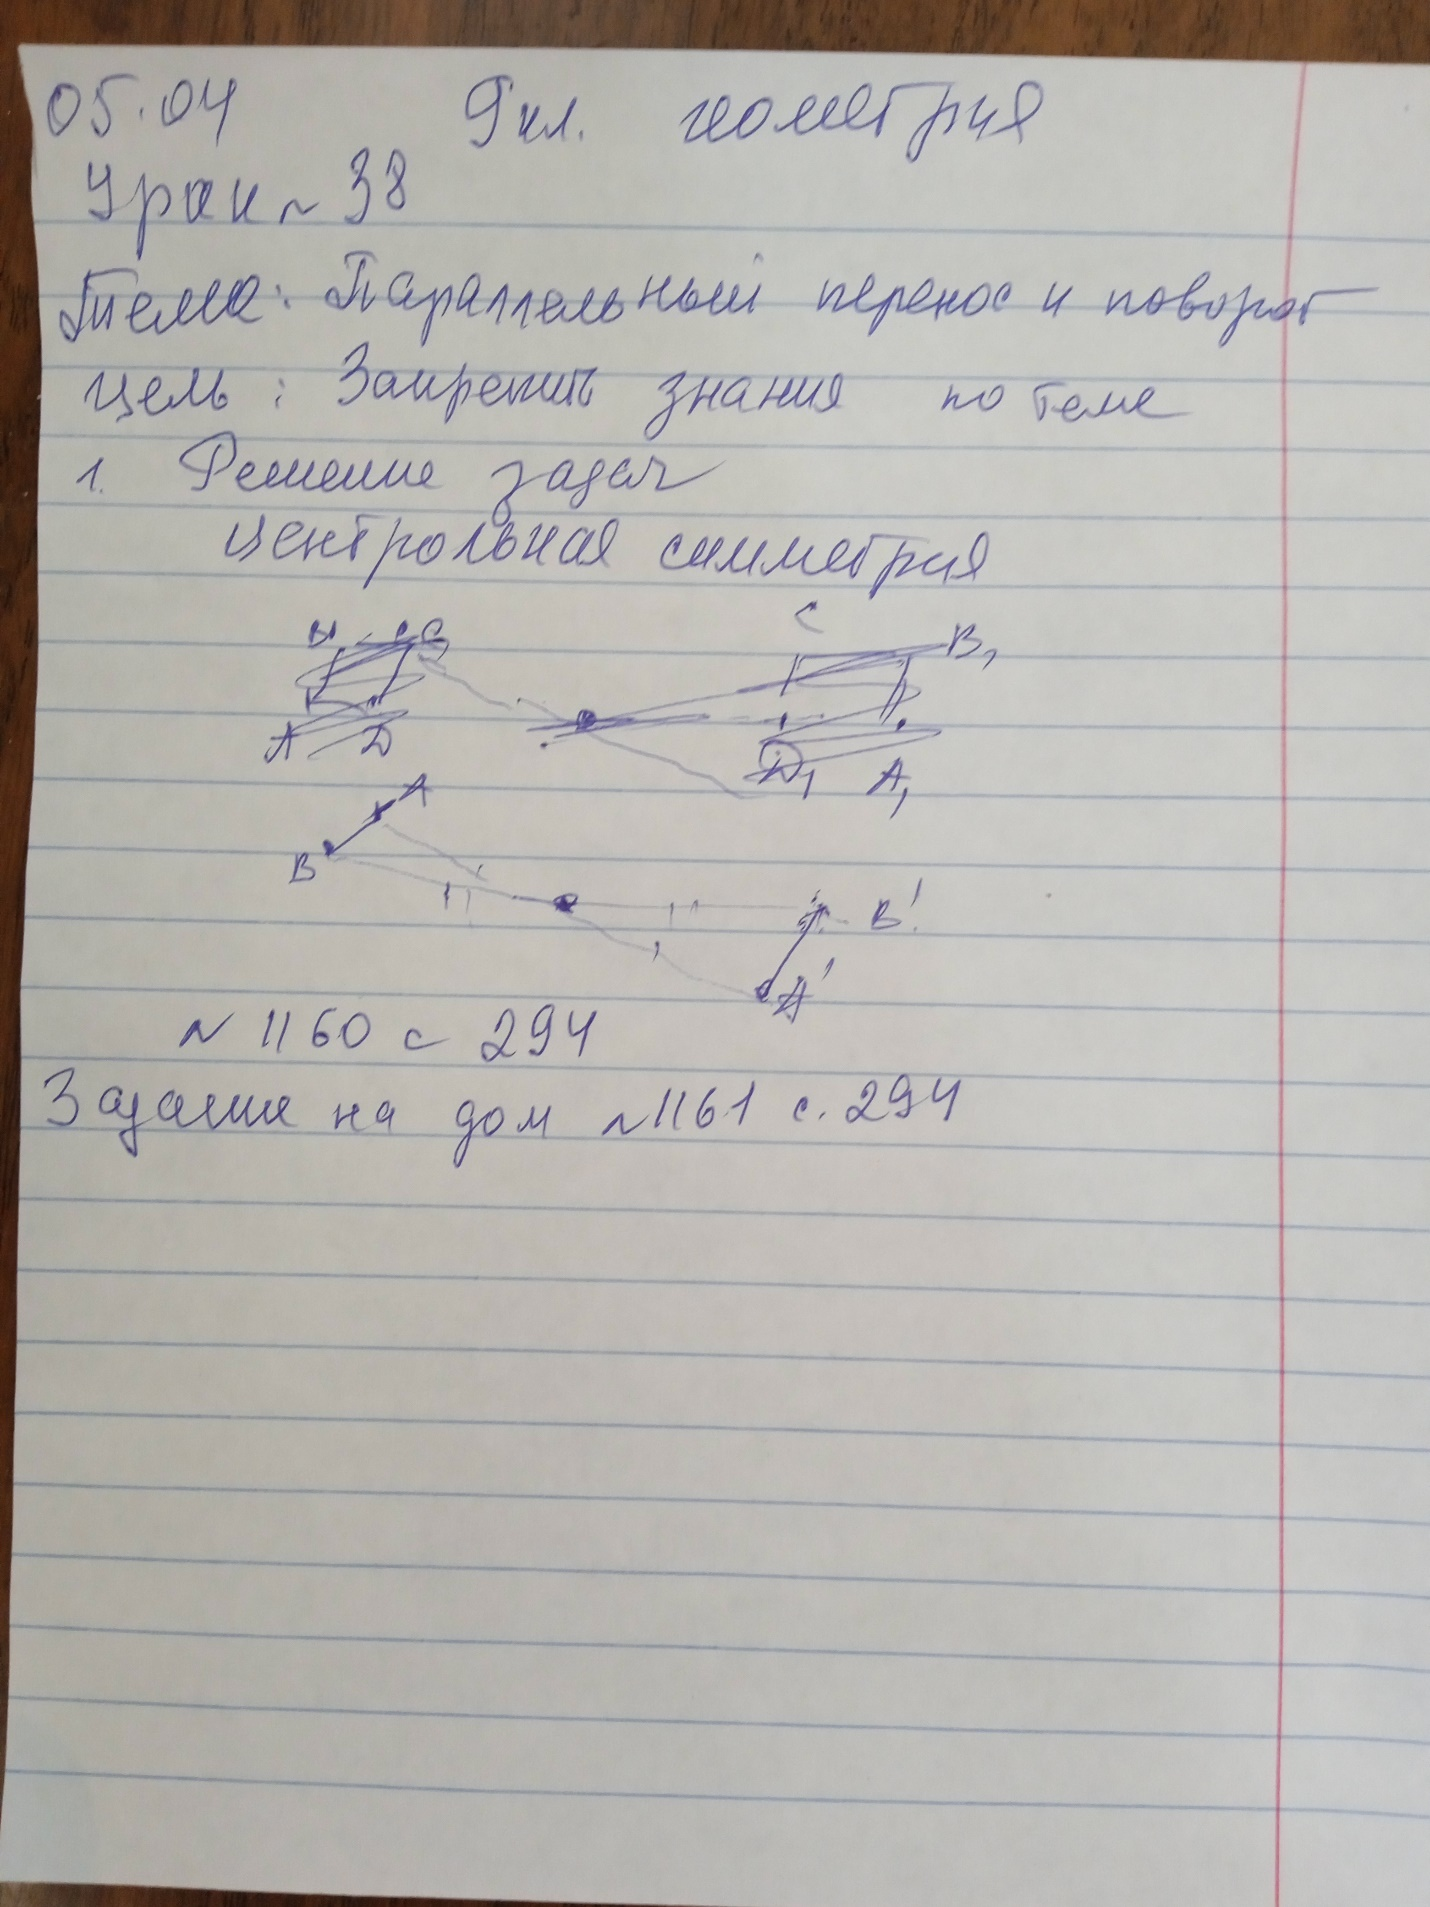 05.04 9 кл. геометрия
Урок № 38
Тема: Параллельный перенос и поворот
Цель: Закрепить знания по теме
1. Решение задач
Центрольная симметрия
C
C B₁
A D D₁ A₁
A
B
B'
A'
№ 1160 с 294
Задание на дом №1161 с. 294